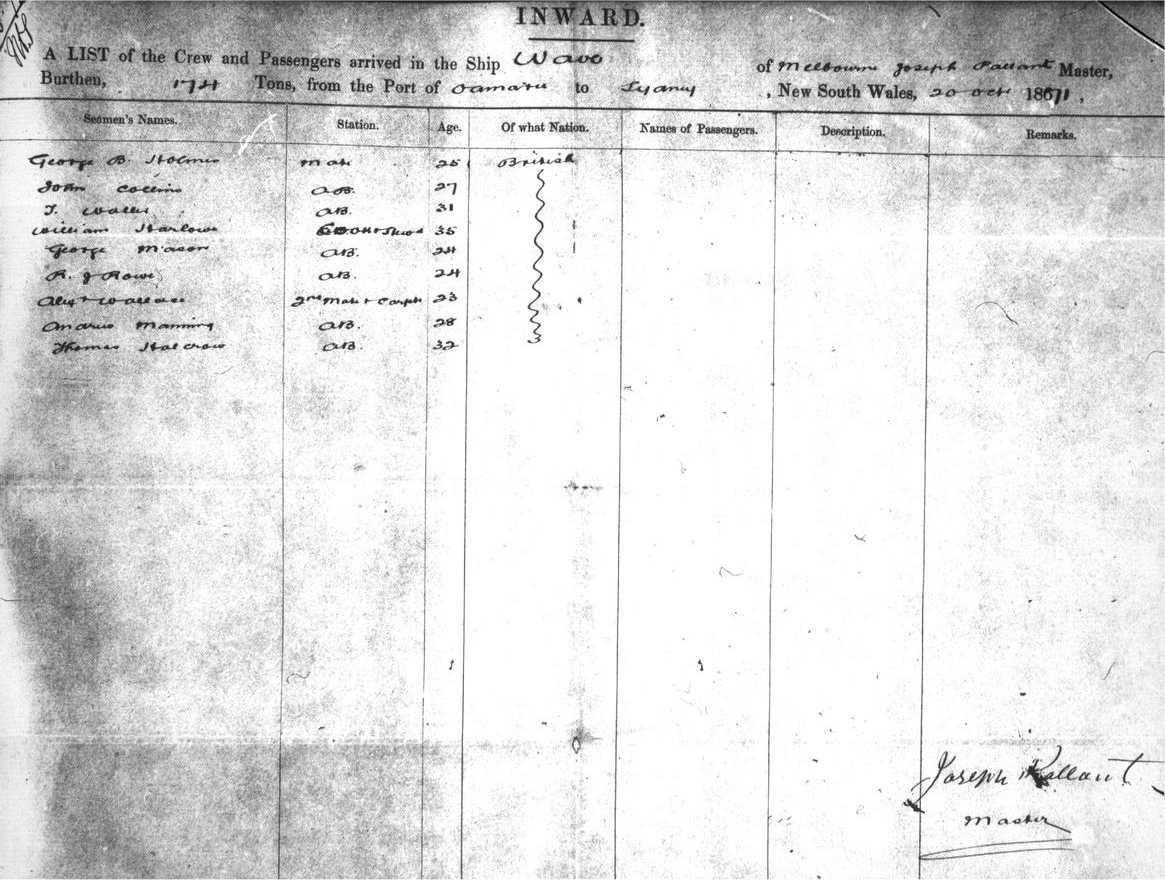 INWARD.
A LIST of the Crew and Passengers arrived in the Ship Wave of Melbourne Joseph Pallant Master,
Burthen, 174 Tons, from the Port of Oamaru to Sydney, New South Wales, 20 Oct 1871,
Seamen's Names. Station. Age. Of what Nation. Names of Passengers. Description. Remarks.
George B. Holmes Mate 25 British
John Collins AB. 27
T. AB. 31
William Harlow Cook & Stwd 35
George Mason AB. 24
R. J Rowe AB. 24
Alexr Wallace 2nd Mate & Carptr 23
Manning AB. 28
Thomas Halcrow AB. 32
Joseph Pallant
Master